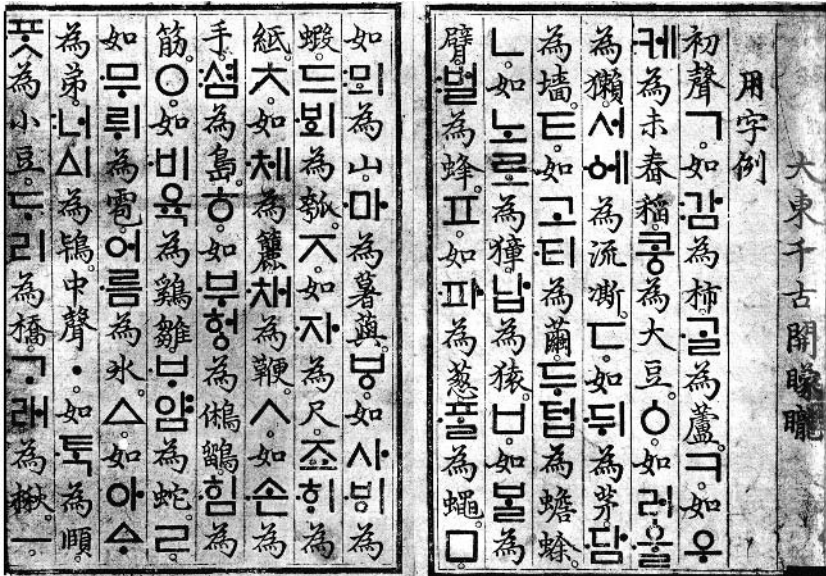 大東千古開矇矓
用字例
初聲ㄱ。如:감為柿。ᄀᆞᆯ為蘆。ㅋ。如우
·케為未舂稻。콩為大豆。ㆁ。如러·ᅌᅮᆯ
為獺。서·ᅌᅦ為流凘。ㄷ。如·뒤為茅。·담
為墻。ㅌ。如고·티為繭。두텁為蟾蜍。
ㄴ。如노로為獐。납為猿。ㅂ。如ᄇᆞᆯ為
臂。:벌為蜂。ㅍ。如·파為葱。·ᄑᆞᆯ為蠅。ㅁ。
如:뫼為山。·마為薯藇。ㅸ。如사·ᄫᅵ為
蝦。드·ᄫᅴ為瓠。ㅈ。如·자為尺。죠·ᄒᆡ為
紙。ㅊ。如·체為籭。채為鞭。ㅅ。如·손為
手。:셤為島。ㅎ。如·부헝為鵂鶹。·힘為
筋。ㅇ。如·비육為鷄雛。·ᄇᆞ얌為蛇。ㄹ。
如·무뤼為雹。어·름為氷。ㅿ。如아ᅀᆞ
為弟。:너ᅀᅵ為鴇。中聲ㆍ。如·ᄐᆞᆨ為頤。
·ᄑᆞᆺ為小豆。ᄃᆞ리為橋。·ᄀᆞ래為楸。ㅡ。